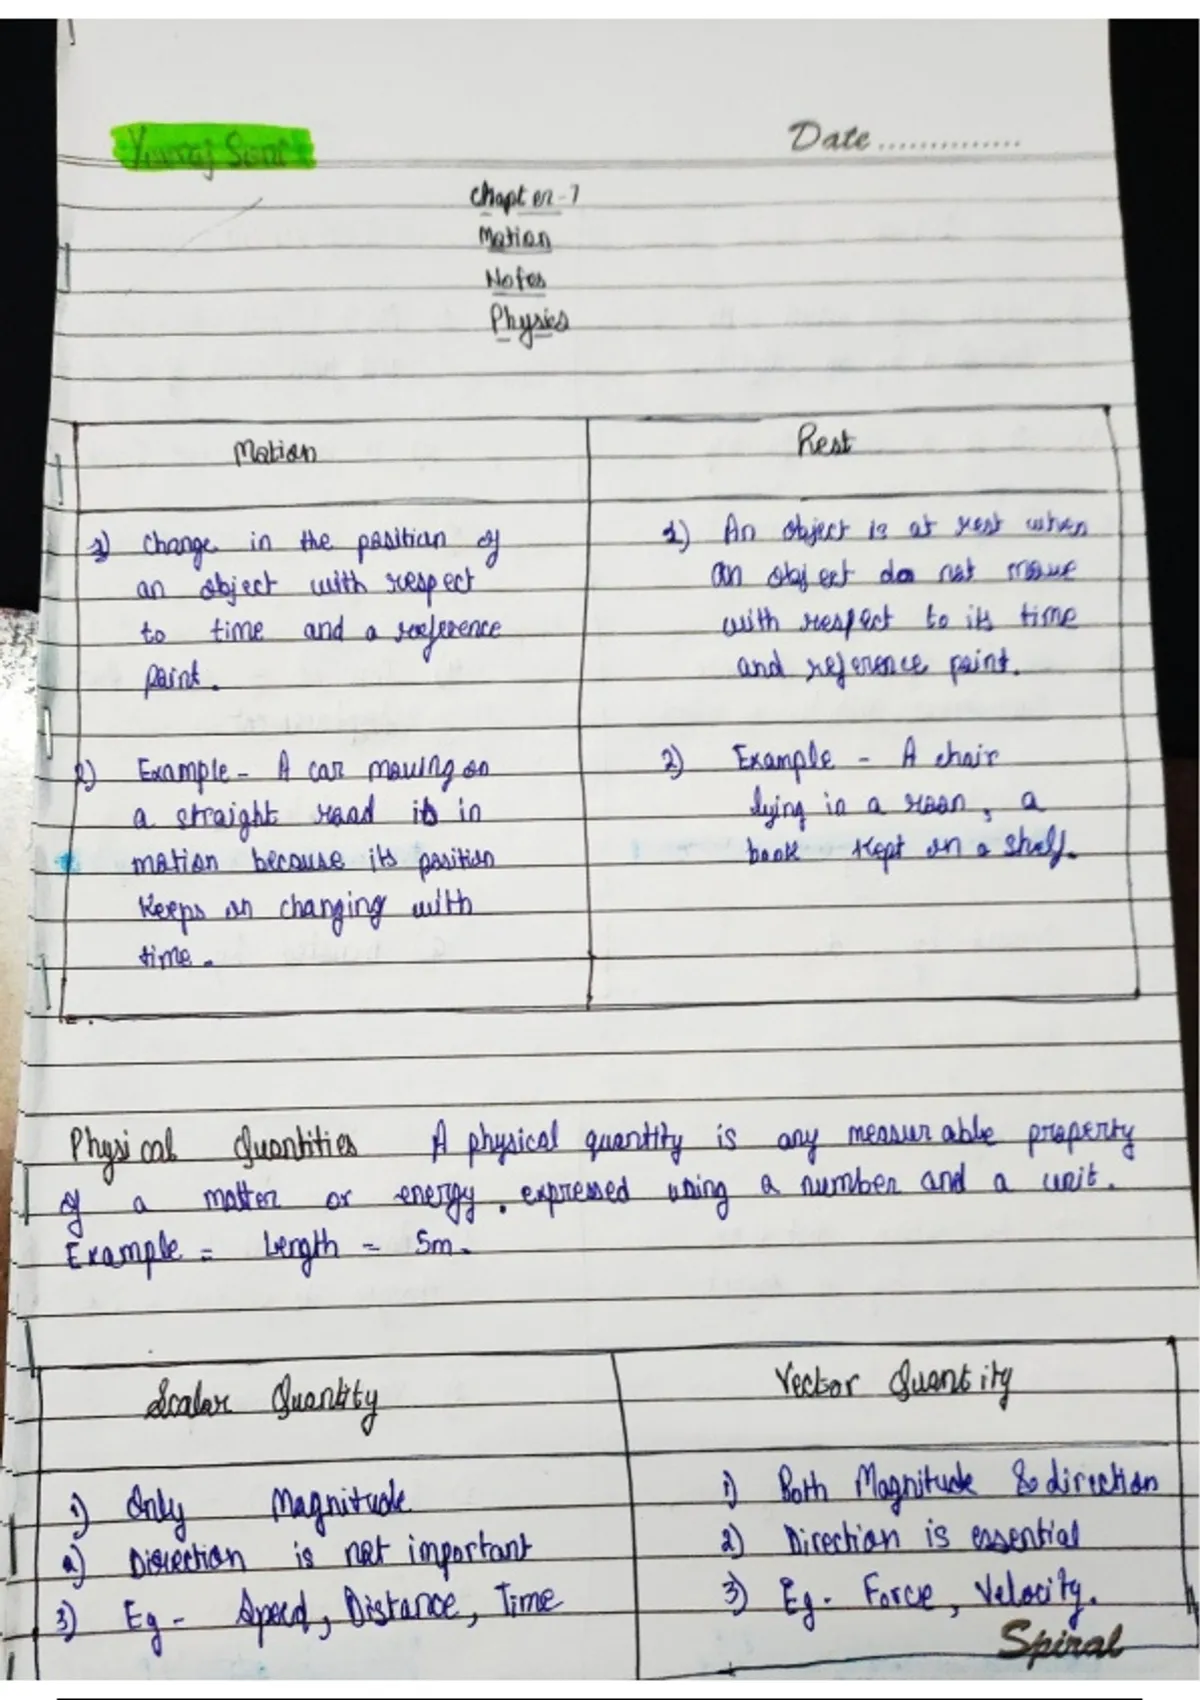 Yuvraj Soni
Date ..............
Chapter-7
Motion
Notes
Physics
Motion
Rest
1) Change in the position of
an object with respect
to time and a reference
point.
1) An object is at rest when
an object do not move
with respect to its time
and reference point.
2) Example - A car moving on
a straight road is in
motion because its position
keeps on changing with
time.
2) Example - A chair
lying in a room, a
book kept on a shelf.
Physical Quantities A physical quantity is any measurable property
of a matter or energy. expressed using a number and a unit.
Example = Length = 5m.
Scalar Quantity
Vector Quantity
1) Only Magnitude
2) Direction is not important
3) Eg - Speed, Distance, Time
1) Both Magnitude & direction
2) Direction is essential
3) Eg. Force, Velocity.
Spiral